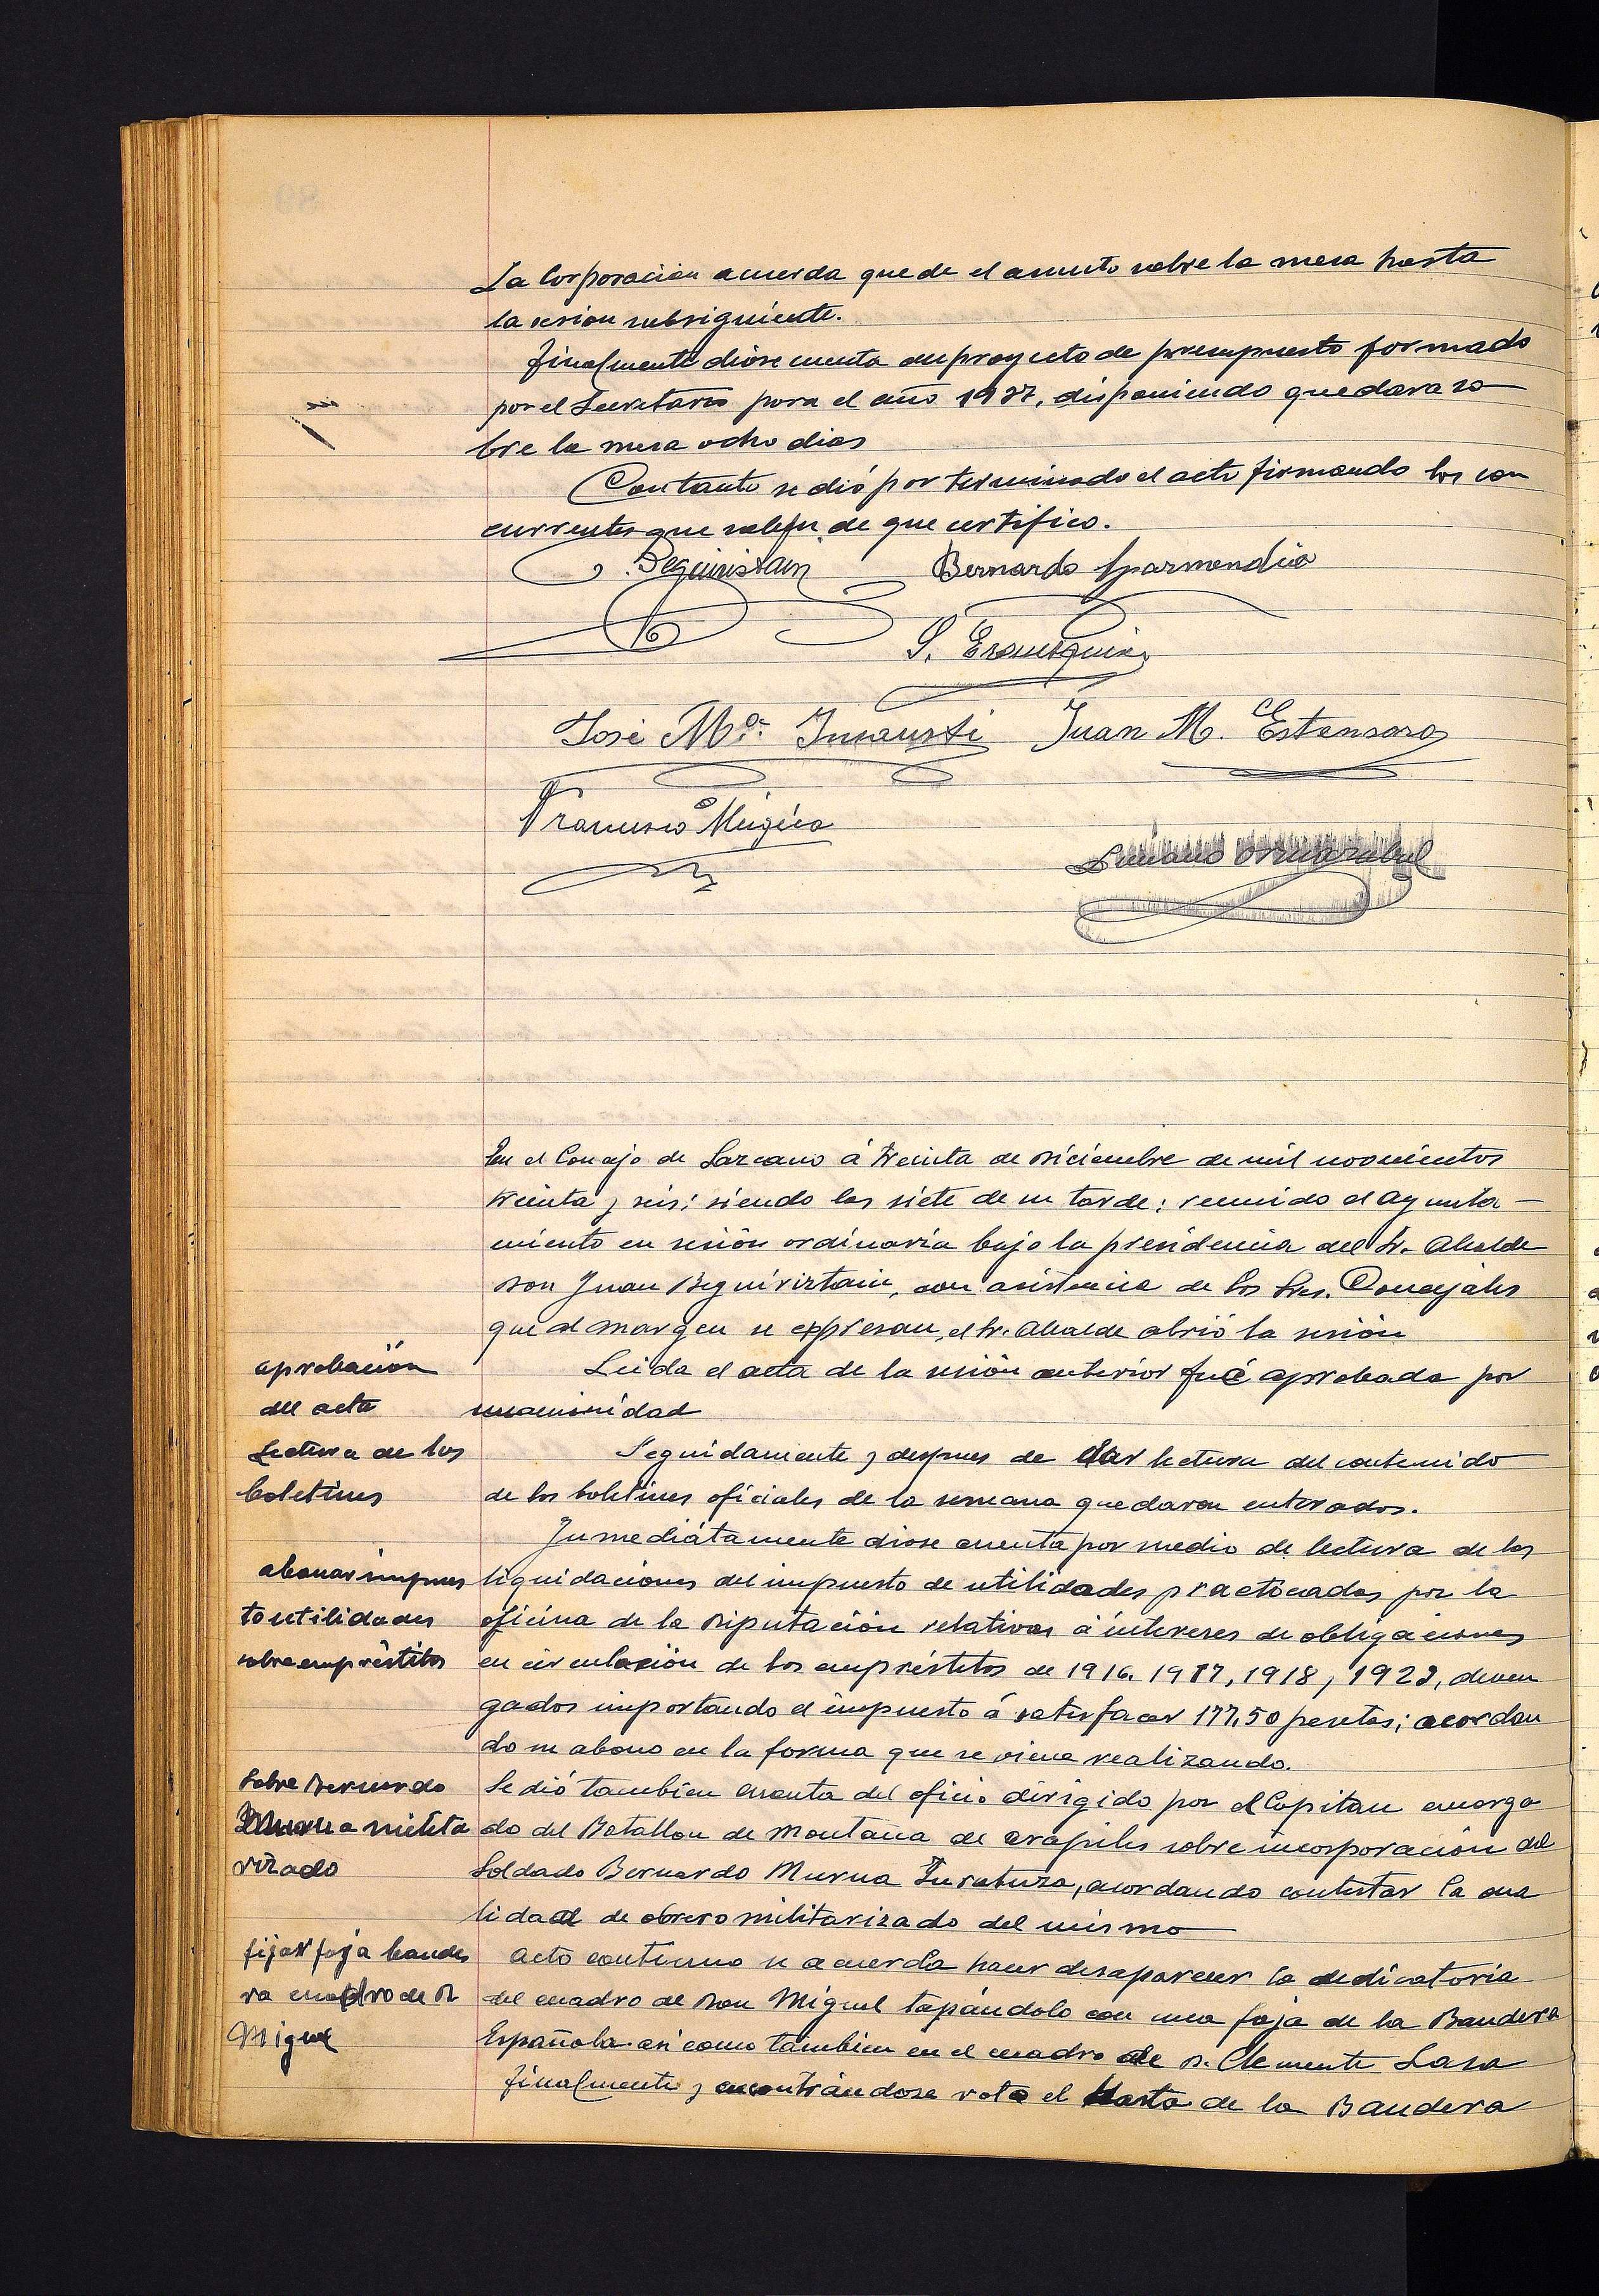 La Corporación acuerda quede el asunto sobre la mesa hasta
la sesion subsiguiente.
Finalmente diose cuenta del proyecto de presupuesto formado
por el Secretario para el año 1937, disponiendo quedara so
bre la mesa ocho dias
Con tanto se dió por terminado el acto firmando los con
currentes que saben de que certifico.
Beguiristain Bernardo Garmendia
José Mª Insausti Juan M. Estensoro
Francisco Múgica
En el Concejo de Lazcano á treinta de Diciembre de mil novecientos
treinta y seis; siendo las siete de su tarde; reunido el Ayunta-
miento en sesión ordinaria bajo la presidencia del Sr. Alcalde
Don Juan Beguiristain, con asistencia de los Sres. Concejales
que al margen se expresan, el Sr. Alcalde abrió la sesión
aprobación
del acta
Leida el acta de la sesión anterior fué aprobada por
unanimidad
Lectura de los
boletines
Seguidamente y despues de dar lectura del contenido
de los boletines oficiales de la semana quedaron enterados.
abonar impues
to utilidades
sobre empréstitos
Inmediátamente diose cuenta por medio de lectura de las
liquidaciones del impuesto de utilidades practicadas por la
oficina de la Diputación relativas á intereses de obligaciones
en circulación de los empréstitos de 1916, 1917, 1918, 1923, deven
gados importando el impuesto á satisfacer 177,50 pesetas; acordan
do su abono en la forma que se viene realizando.
Sobre Bernardo
Murua milita
rizado
Se dió tambien cuenta del oficio dirigido por el Capitan encarga
do del Batallon de Montaña de Arapiles sobre incorporación del
Soldado Bernardo Murua, acordando contestar la cua
lidad de obrero militarizado del mismo
fijar faja bande
ra cuadro de D.
Miguel
Acto continuo se acuerda hacer desaparecer la dedicatoria
del cuadro de Don Miguel tapándolo con una faja de la Bandera
Española asi como tambien en el cuadro de D. Clemente Lasa
Finalmente y encontrándose rota el hasta de la Bandera